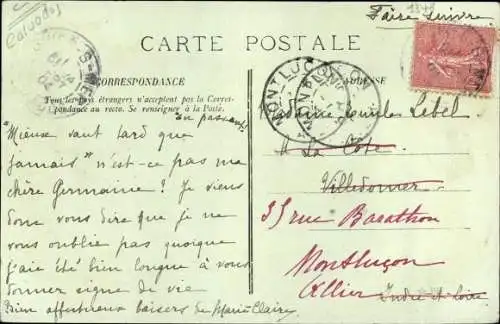 (Calvados)
Faire suivre
CARTE POSTALE
CORRESPONDANCE
ADRESSE
Tous les pays étrangers n'acceptent pas la Corres-
pondance au recto. Se renseigner à la Poste.
En passant
"Mieux vaut tard que
jamais" n'est-ce pas ma
chère Germaine? Je viens
donc vous dire que je ne
vous oublie pas quoique
j'aie été bien longue à vous
donner signe de vie
Bien affectueux baisers de Marie Claire
MONTLUÇON
Madame Emile Lebel
La Côte
Villedomer
35 rue Barathon
Montluçon
Allier
Indre et Loire